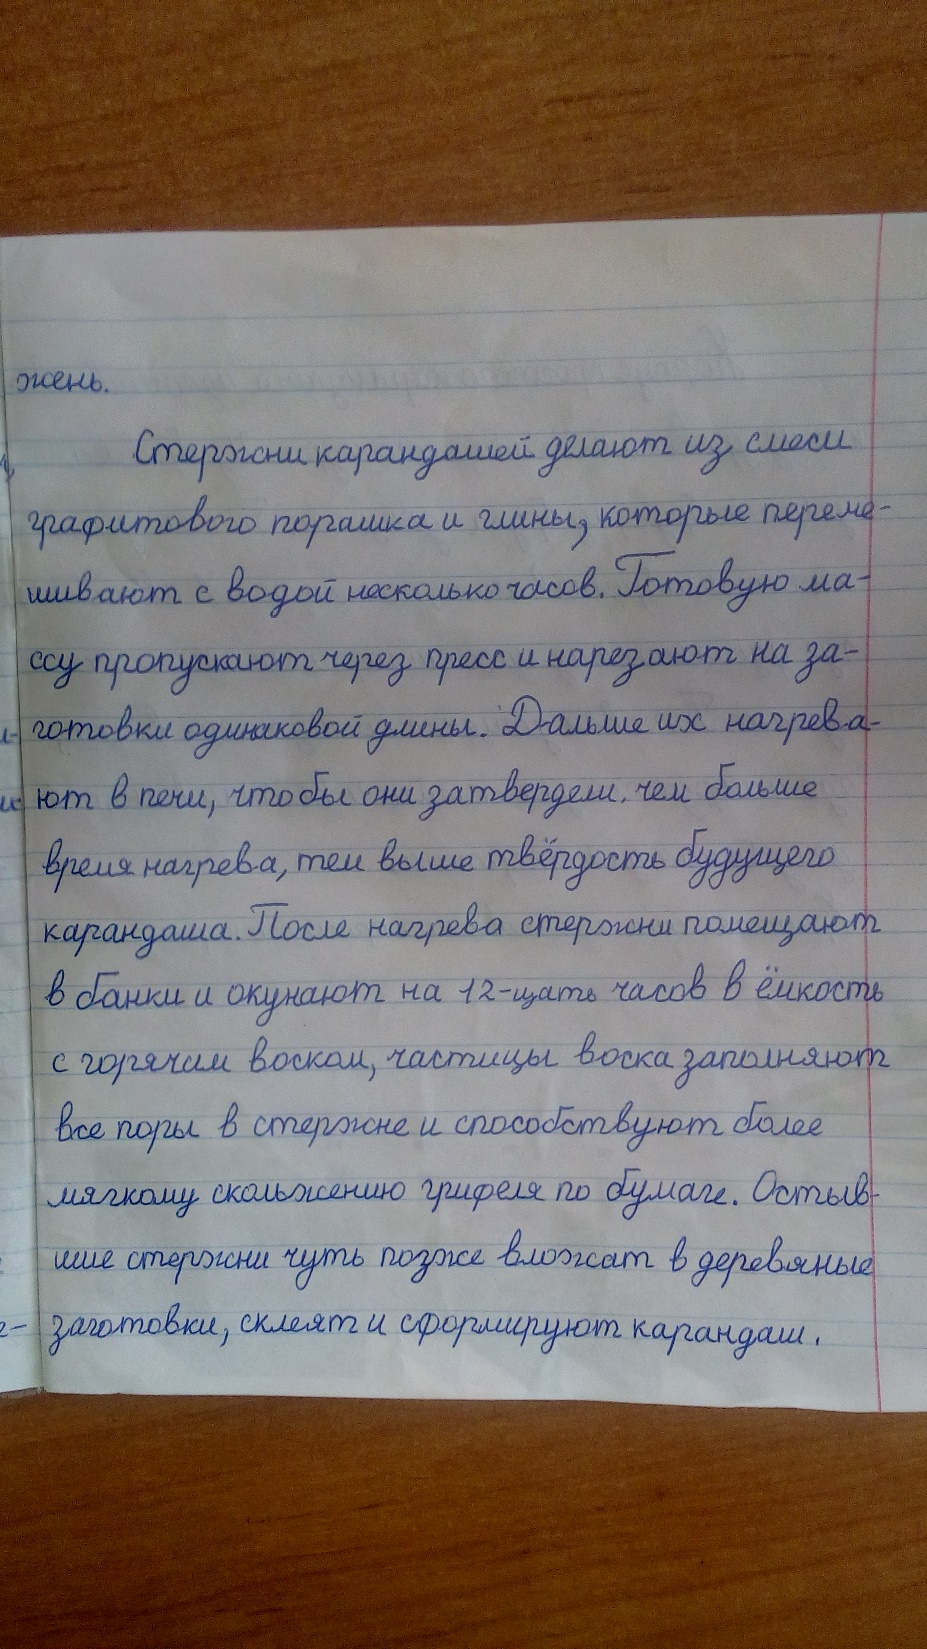 жень.
Стержни карандашей делают из смеси
графитового порашка и глины, которые переме-
шивают с водой несколько часов. Готовую ма-
ссу пропускают через пресс и нарезают на за-
готовки одинаковой длины. Дальше их нагрева-
ют в печи, чтобы они затвердели. чем больше
время нагрева, тем выше твёрдость будущего
карандаша. После нагрева стержни помещают
в банки и окунают на 12-щать часов в ёмкость
с горячим воском, частицы воска заполняют
все поры в стержне и способствуют более
мягкому скольжению грифеля по бумаге. Остыв-
шие стержни чуть позже вложат в деревяные
заготовки, склеят и сформируют карандаш.